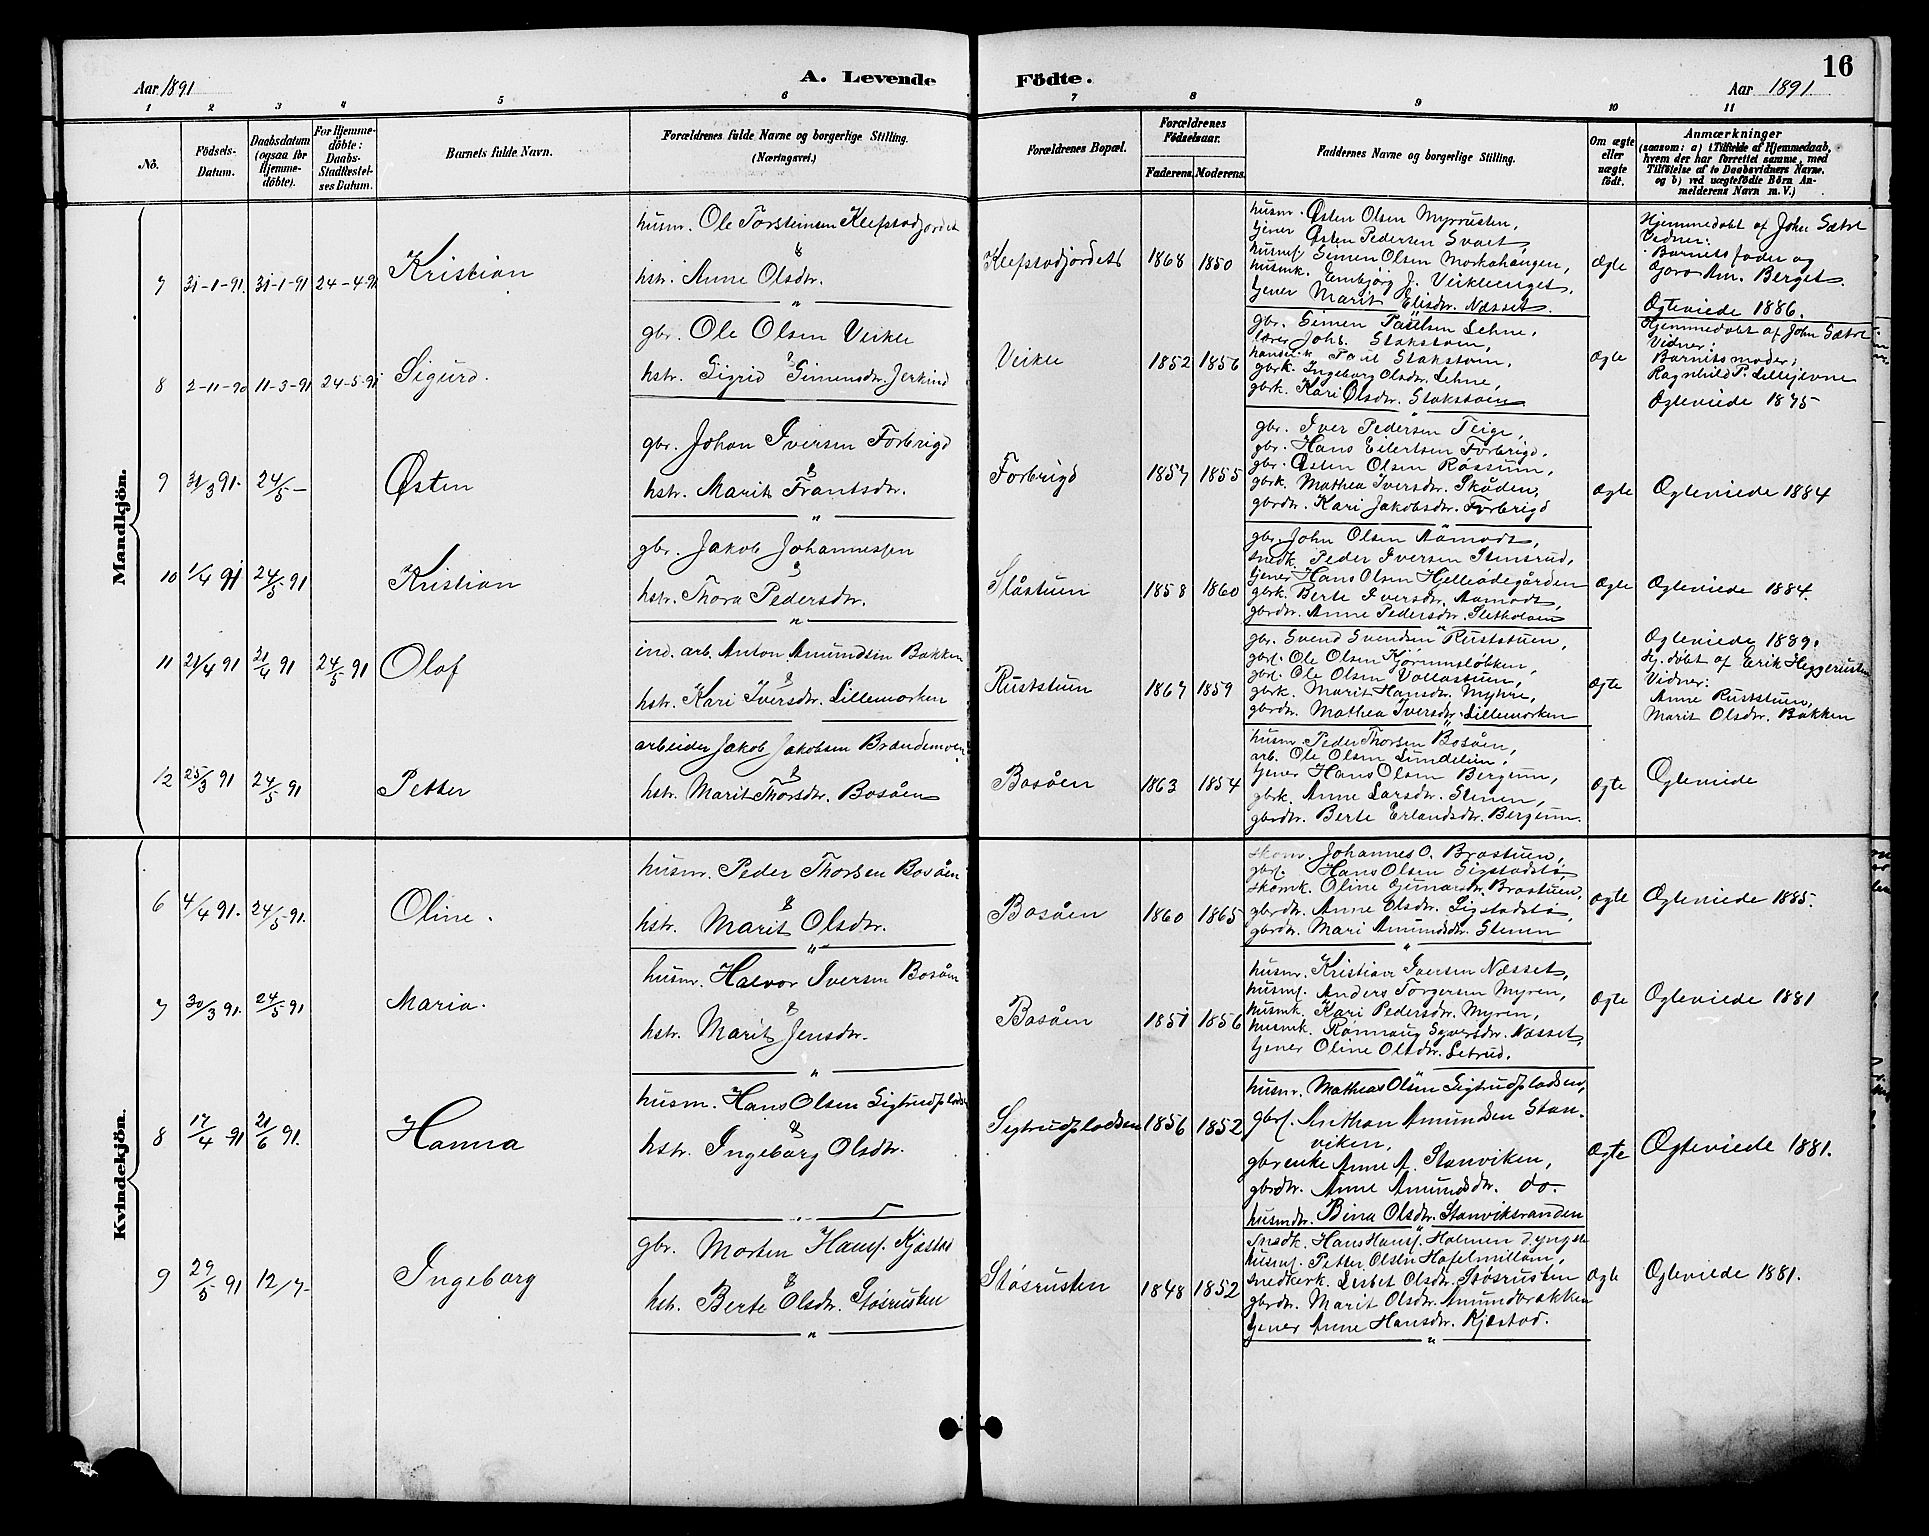 Aar 1891
A. Levende
Födte.
Aar 1891.
16
1 2 3 4 5 6 7 8 9 10 11
Nô.
Födsels-
Datum.
Daabsdatum
(ogsaa for
Hjemme-
döbte).
For Hjemme-
döbte:
Daabs-
Stadfæstel-
ses Datum.
Barnets fulde Navn.
Forældrenes fulde Navne og borgerlige Stilling.
(Næringsvei.)
Forældrenes Bopæl.
Forældrenes
Födselsaar.
Faderens. Moderens.
Faddernes Navne og borgerlige Stilling.
Om ægte
eller
uægte
födt.
Anmærkninger
(saasom: a) i Tilfælde af Hjemmedaab,
hvem der har forrettet samme, med
Tilföielse af to Daabsvidners Navne,
og b) ved uægtefödte Börn An-
melderens Navn m. V.)
Mandkjön.
7 31-1-91. 31-1-91 24-4-91 Kristian
husm. Ole Torsteinsen Klefstadjordet
&
hstr. Anne Olsdtr.
Klefstadjordet 1868 1850
husm. Østen Olsen Myrrusten,
tjener Østen Pedersen Svaet,
husmf. Simen Olsen Morkahaugen,
husmk. Embjørg J. Veikleenget,
tjener Marit Elisdtr. Næsset.
Ægte
Hjemmedøbt af John Sætre
Vidner:
Barnets fader og
Goro Am. Berget.
Ægteviede 1886.
8 2-11-90 11-3-91 24-5-91 Sigurd.
gbr. Ole Olsen Veikle
&
hstr. Sigrid Simensdtr. Jerkind
Veikle 1852 1856
gbr. Simen Paulsen Lehne,
lærer Johs. Stakstoen,
Paul Stakstoen,
gbrk. Ingeborg Olsdtr. Lehne,
gbrk. Kari Olsdtr. Stakstoen
Ægte
Hjemmedøbt af John Sætre
Vidner:
Barnets moder;
Ragnhild P. Lillejevne
Ægteviede 1875
9 31/3 91. 24/5 - Østen
gbr. Johan Iversen Forbrigd
&
hstr. Marit Frantsdtr.
Forbrigd 1857 1855
gbr. Iver Pedersen Teige,
gbr. Hans Eilertsen Forbrigd,
gbr. Østen Olsen Røssum,
gbrk. Mathea Iversdtr. Skåden,
gbrdtr. Kari Jakobsdtr. Forbrigd
Ægte
Ægteviede 1884
10 1/4 91 24/5 91 Kristian
gbr. Jakob Johannessen
&
hstr. Thora Pedersdtr.
Slåstuen 1858 1860
gbr. John Olsen Aamodt,
snedk. Peder Iversen Stenerud,
tjener Hans Olsen Hjelleadegården
gbrk. Berte Iversdtr. Aamodt,
gbrdtr. Anne Pedersdtr. Sletholøen
Ægte
Ægteviede 1884.
11 21/4 91 21/4 91 24/5 91 Olaf
ind. arb. Anton Amundsen Bakken
&
hstr. Kari Iversdtr. Lillemorken
Ruststuen 1867 1859
gbr. Svend Svendsen Ruststuen,
gbrf. Ole Olsen Kjørumsløkken,
gbrf. Ole Olsen Vollastuen,
gbrk. Marit Hansdtr. Myhre,
gbrdtr. Mathea Iversdtr. Lillemorken
Ægte
Ægteviede 1889.
Hj. døbt af Erik Heggerusten
Vidner:
Anne Ruststuen,
Marit Olsdtr. Bakken
12 25/3 91 24/5 91 Petter
arbeider Jakob Jakobsen Brandemoen
&
hstr. Marit Thorsdtr. Bosåen
Bosåen 1863 1854
husm. Peder Thorsen Bosåen,
arb. Ole Olsen Lundeløen,
tjener Hans Olsen Bergum,
gbrk. Anne Larsdtr. Stenen,
gbrdtr. Berte Erlandsdtr. Bergum.
Ægte
Ægteviede
Kvindekjön.
6 4/4 91. 24/5 91. Oline.
husm. Peder Thorsen Bosåen
&
hstr. Marit Olsdtr.
Bosåen 1860 1865
skom. Johannes O. Brastuen,
gbrf. Hans Olsen Sigstadstø,
skomk. Oline Gunarsdtr. Brastuen,
gbrdtr. Anne Olsdtr. Sigstadstø,
gbrdtr. Mari Amundsdtr. Stenen
Ægte
Ægteviede 1885.
7 30/3 91. 24/5 91 Maria.
husm. Halvor Iversen Bosåen
&
hstr. Marit Jensdtr.
Bosåen 1851 1856
husm. Kristian Iversen Næsset,
husmf. Anders Torgersen Myren,
husmk. Kari Pedersdtr. Myren,
husmk. Rønnaug Syversdtr. Næsset,
tjener Oline Olsdtr. Letrud.
Ægte
Ægteviede 1881
8 17/4 91 21/6 91. Hanna
husm. Hans Olsen Sigtrudpladsen
&
hstr. Ingeborg Olsdtr.
Sigtrudpladsen 1856 1852
husm. Mathias Olsen Sigtrudpladsen,
gbrf. Anthon Amundsen Stan-
viken,
gbrenke Anne A. Stanviken,
gbrdtr. Anne Amundsdtr. do.
husmdtr. Bina Olsdtr. Stanviksranden
Ægte
Ægteviede 1881.
9 29/5 91 12/7- Ingeborg
gbr. Morten Hansf. Kjæstad
&
hstr. Berte Olsdtr. Støsrusten
Støsrusten 1848 1852
Snedk. Hans Hansf. Holmen d. yngre
husmf. Petter Olsen Hofelmillom,
snedkerk. Lisbet Olsdtr. Støsrusten
gbrdtr. Marit Olsdtr. Amundbakken
tjener Anne Hansdtr. Kjæstad.
Ægte
Ægteviede 1881.